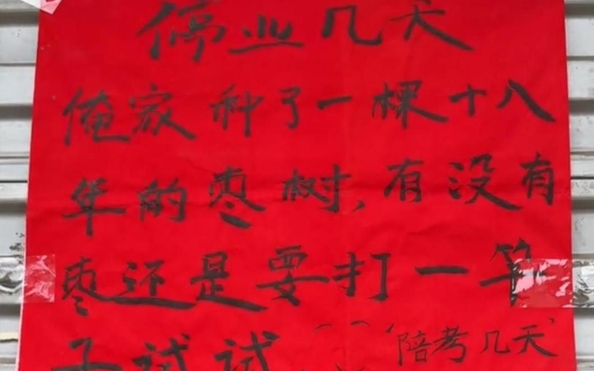 停业几天
俺家种了一棵十八
年的枣树,有没有
枣还是要打一竿
子试试
陪考几天